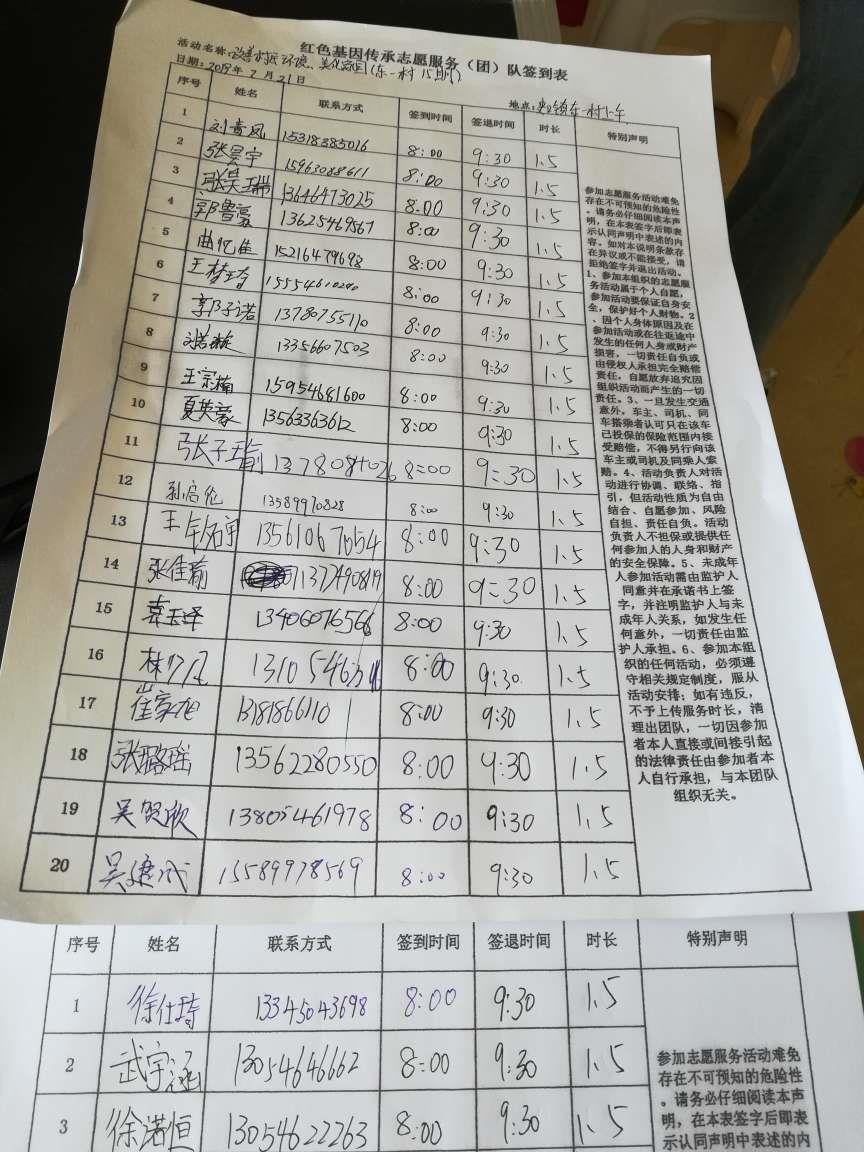 红色基因传承志愿服务（团）队签到表
活动名称：改善村居环境、美化家园（东一村15期）
日期：2019年7月21日 地点：东一村
序号 姓名 联系方式 签到时间 签退时间 时长 特别声明
1 刘青风 15318385016 8:00 9:30 1.5
2 张昊宇 15963088611 8:00 9:30 1.5
3 张昊瑞 13646473025 8:00 9:30 1.5
4 郭鲁豪 13625469567 8:00 9:30 1.5
5 曲忆佳 15216479698 8:00 9:30 1.5
6 王梦琦 15554610290 8:00 9:30 1.5
7 郭子诺 13780755110 8:00 9:30 1.5
8 13356607503 8:00 9:30 1.5
9 王宗楠 15954681600 8:00 9:30 1.5
10 夏英豪 13563363612 8:00 9:30 1.5
11 张子瑜 8:00 9:30 1.5
12 孙启伦 13589970828 8:00 9:30 1.5
13 13561067654 8:00 9:30 1.5
14 张佳瑜 8:00 9:30 1.5
15 袁玉泽 13406076566 8:00 9:30 1.5
16 林少凡 8:00 9:30 1.5
17 崔家旭 13181866110 8:00 9:30 1.5
18 张璐瑶 13562280550 8:00 9:30 1.5
19 吴贺欣 13805461978 8:00 9:30 1.5
20 15589978569 8:00 9:30 1.5
参加志愿服务活动难免
存在不可预知的危险性
。请务必仔细阅读本声
明，在本表签字后即表
示认同声明中表述的内
容。如对本说明条款存
在异议或不能接受，请
拒绝签字并退出活动。
1、参加本组织的志愿服
务活动属于个人自愿，
参加活动要保证自身安
全，保护好个人财物。2
、因个人身体原因及在
参加活动或在往返途中
发生的任何人身或财产
损害，一切责任自负或
由侵权人承担完全赔偿
责任，自愿放弃追究因
组织活动而产生的一切
责任。3、一旦发生交通
意外，车主、司机、同
车搭乘者认可只在该车
已投保的保险范围内接
受赔偿，不得另行向该
车主或司机及同乘人索
赔。4、活动负责人对活
动进行协调、联络、指
引，但活动性质为自由
结合、自愿参加、风险
自担、责任自负。活动
负责人不担保或提供任
何参加人的人身和财产
的安全保障。5、未成年
人参加活动需由监护人
同意并在承诺书上签
字，并注明监护人与未
成年人关系，如发生任
何意外，一切责任由监
护人承担。6、参加本组
织的任何活动，必须遵
守相关规定制度，服从
活动安排；如有违反，
不予上传服务时长，清
理出团队，一切因参加
者本人直接或间接引起
的法律责任由参加者本
人自行承担，与本团队
组织无关。
序号 姓名 联系方式 签到时间 签退时间 时长 特别声明
1 徐仕琦 13345043698 8:00 9:30 1.5
2 武宇涵 13054646662 8:00 9:30 1.5
3 徐诺恒 13054622263 8:00 9:30 1.5
参加志愿服务活动难免
存在不可预知的危险性
。请务必仔细阅读本声
明，在本表签字后即表
示认同声明中表述的内